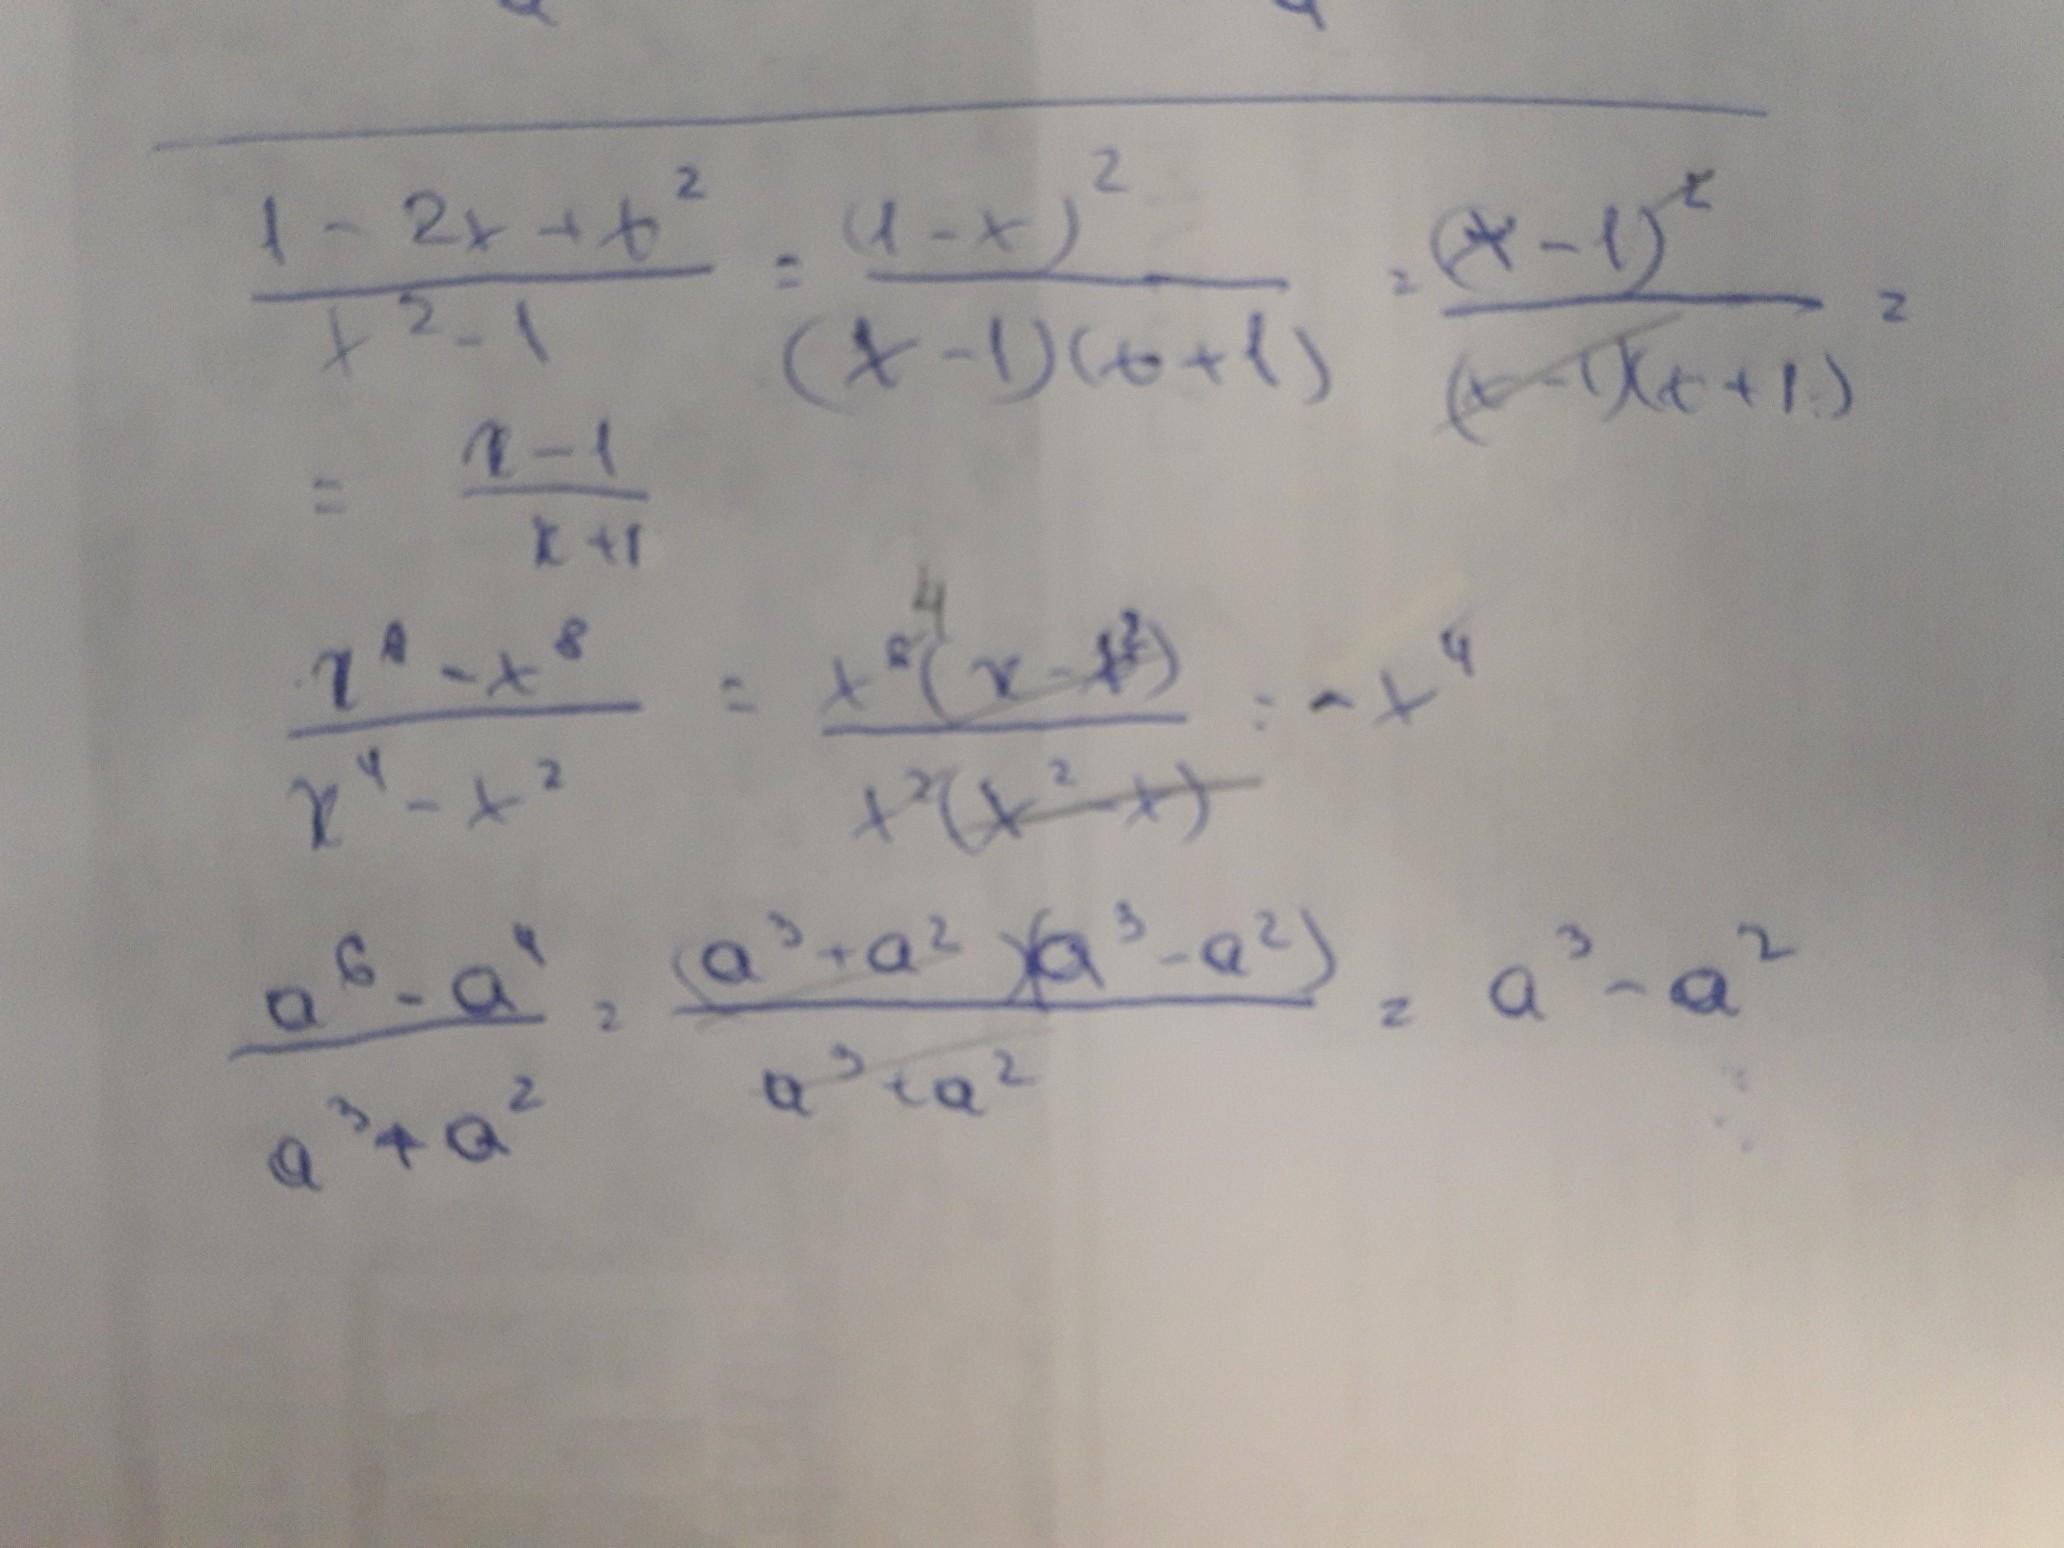 (1 - 2x + x²)/(x² - 1) = (1 - x)²/((x - 1)(x + 1)) = (x - 1)²/((x - 1)(x + 1)) =
= (x - 1)/(x + 1)
- x⁸)/(x⁴ - x²) = 4 (x - x²)/(x²(x² - x)) = - x⁴
(a⁶ - a⁴)/(a³ + a²) = (a³ + a²)(a³ - a²)/(a³ + a²) = a³ - a²